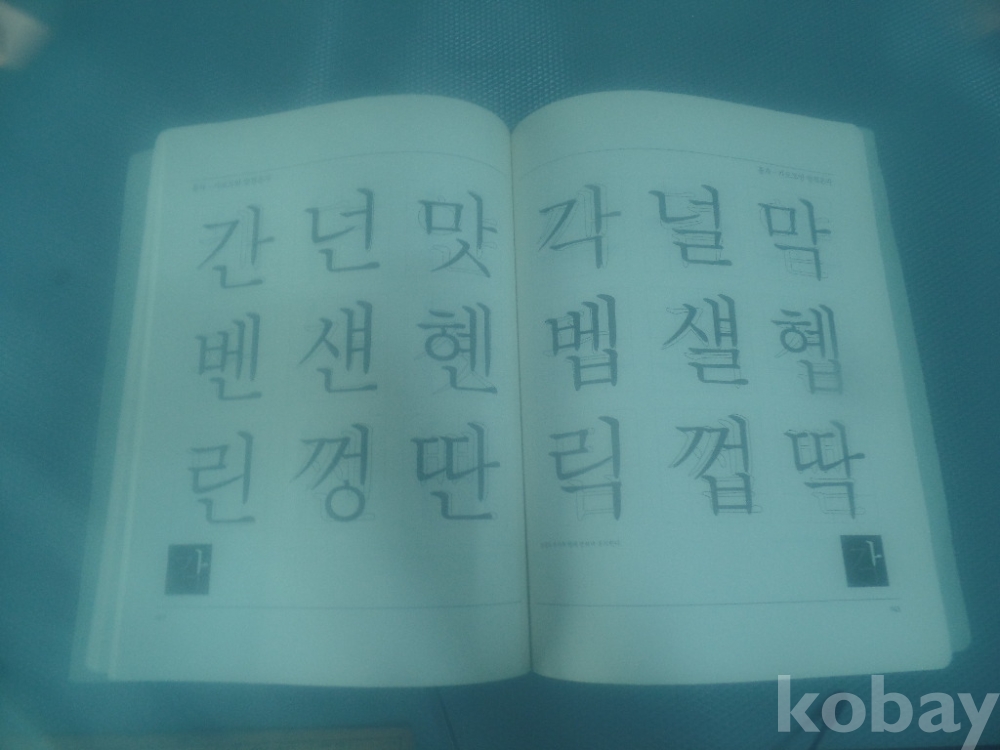 간 넌 맛
벤 섄 헨
린 껑 딴
가
각 널 막
벱 섈 헵
릭 껍 딱
가
kobay